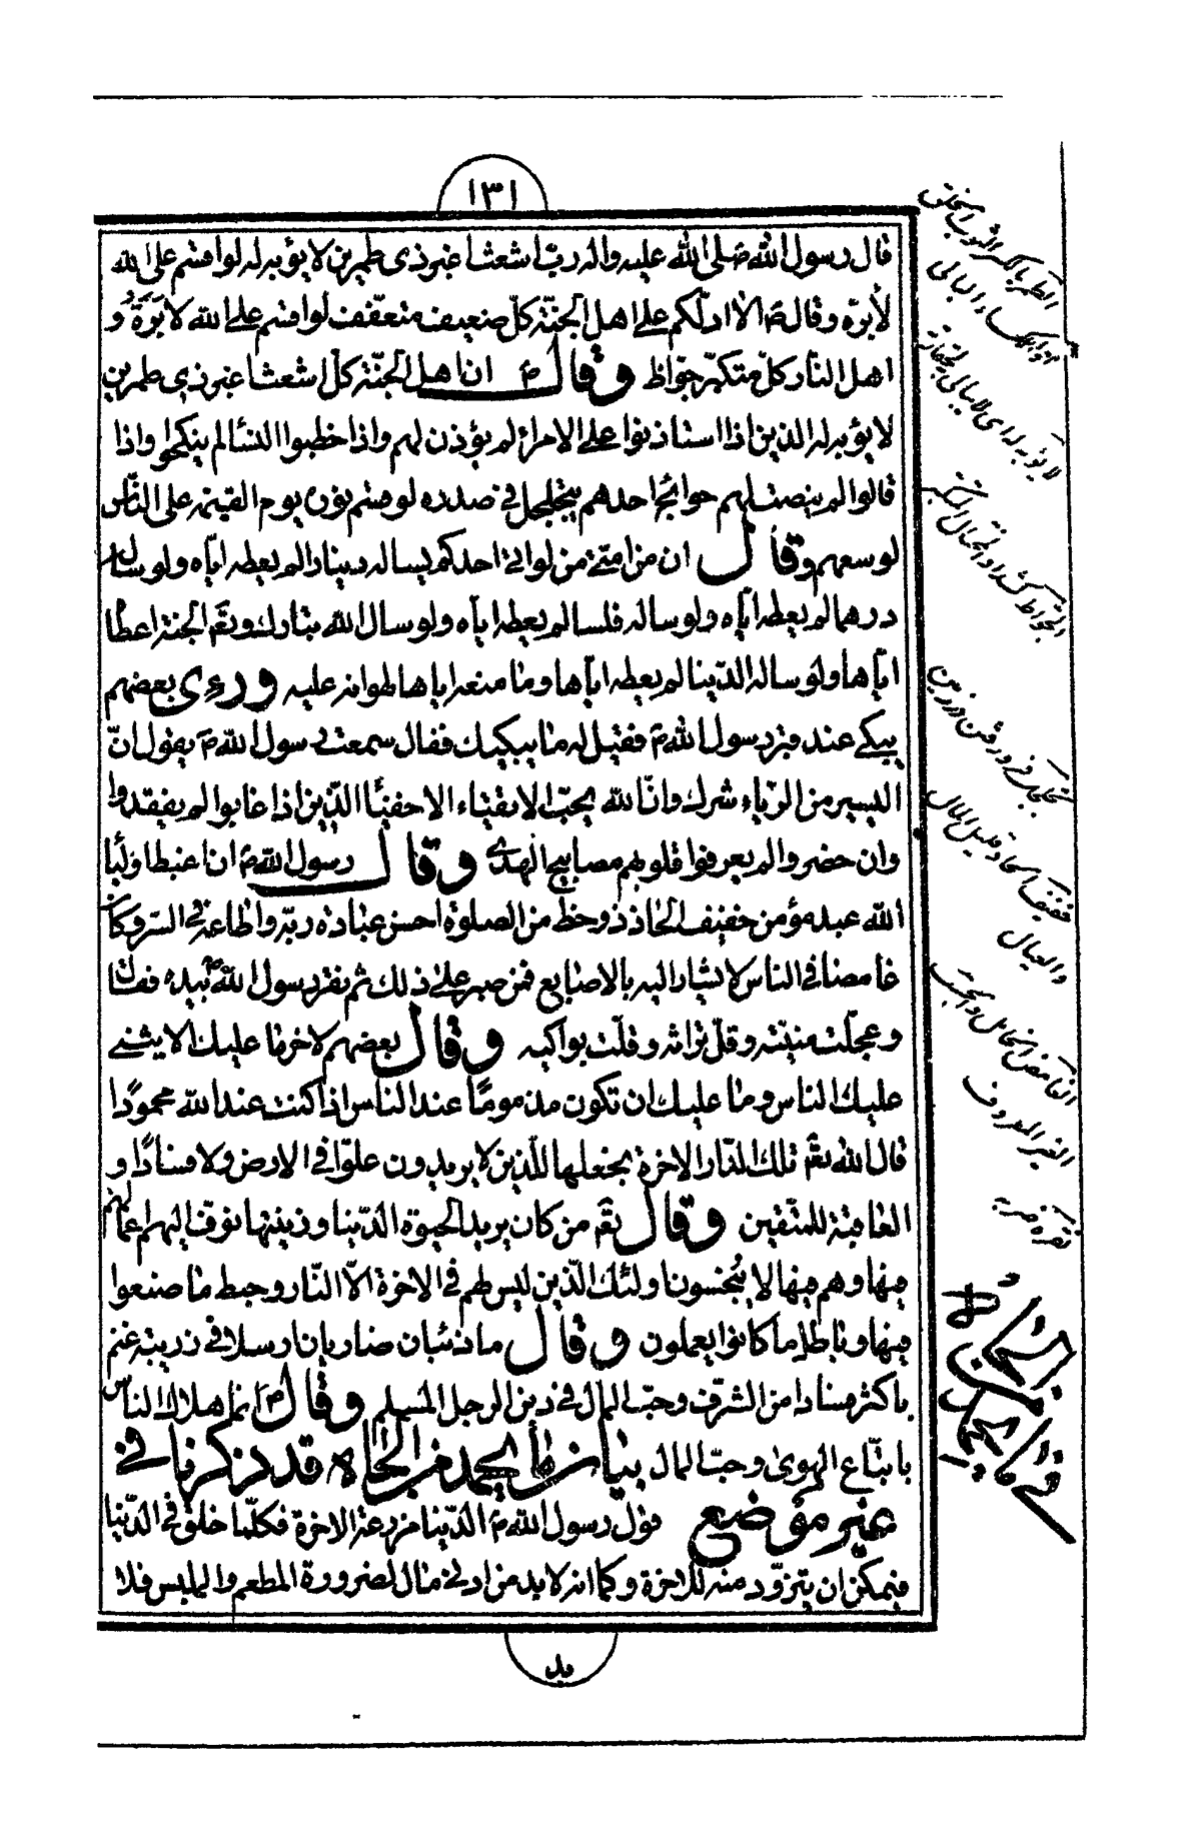 ١٣١
قال رسول الله صلى الله عليه واله رب اشعث اغبر ذى طمرين لا يؤبه له لو اقسم على الله
لأبره وقال ص الا ادلكم على اهل الجنة كل ضعيف متعفف لو اقسم على الله لابره و
اهل النار كل متكبر جواظ وقال ص ان اهل الجنة كل اشعث اغبر ذى طمرين
لا يؤبه له الذين اذا استاذنوا على الامراء لم يؤذن لهم واذا خطبوا النساء لم ينكحوا واذا
قالوا لم ينصت لهم حوائج احدهم يتخلجل فى صدره لو قسم نوره يوم القيمة على الناس
لوسعهم وقال ان من امتى من لو اتى احدكم يساله دينارا لم يعطه اياه ولو ساله
درهما لم يعطه اياه ولو ساله فلسا لم يعطه اياه ولو سال الله تبارك وتعالى الجنة اعطاه
اياها ولو ساله الدنيا لم يعطه اياها وما منعه اياها لهوانه عليه وروى بعضهم
يبكى عند قبر رسول الله ص فقيل له ما يبكيك فقال سمعت رسول الله ص يقول ان
اليسير من الرياء شرك وان الله يحب الاتقياء الاخفياء الذين اذا غابوا لم يفقدوا
وان حضروا لم يعرفوا قلوبهم مصابيح الهدى وقال رسول الله ص ان اغبط اولياء
الله عبد مؤمن خفيف الحاذ ذو حظ من الصلوة احسن عبادة ربه واطاعه فى السر وكان
غامضا فى الناس لا يشار اليه بالاصابع فمن صبر على ذلك ثم نقر رسول الله ص بيده فقال
وعجلت منيته وقل تراثه وقلت بواكيه وقال بعضهم لاخر ما عليك الا يثنى
عليك الناس وما عليك ان تكون مذموما عند الناس اذا كنت عند الله محمودا
قال الله تع تلك الدار الاخرة نجعلها للذين لا يريدون علوا فى الارض ولا فسادا و
العاقبة للمتقين وقال تع من كان يريد الحيوة الدنيا وزينتها نوف اليهم اعمالهم
فيها وهم فيها لا يبخسون اولئك الذين ليس لهم فى الاخرة الا النار وحبط ما صنعوا
فيها وباطل ما كانوا يعملون وقال ما ذئبان ضاريان ارسلا فى زريبة غنم
باكثر فسادا من الشرف وحب المال فى دين الرجل المسلم وقال ص انما هلاك الناس
باتباع الهوى وحب المال بيان ما يحمد من الجاه قد ذكرنا فى
غير موضع قول رسول الله ص الدنيا مزرعة الاخرة فكلما خلق فى الدنيا
فيمكن ان يتزود منه للاخرة وكما انه لا بد من ادنى مال لضرورة المطعم والملبس فلا
بد
الطمر بالكسر الثوب الخلق
او الكساء البالى
لا يؤبه له اى لا يبالى به لحقارته
خفيف الحاذ قليل المال
والعيال
الغامض الخامل
الغير المعروف
نقره ضربه